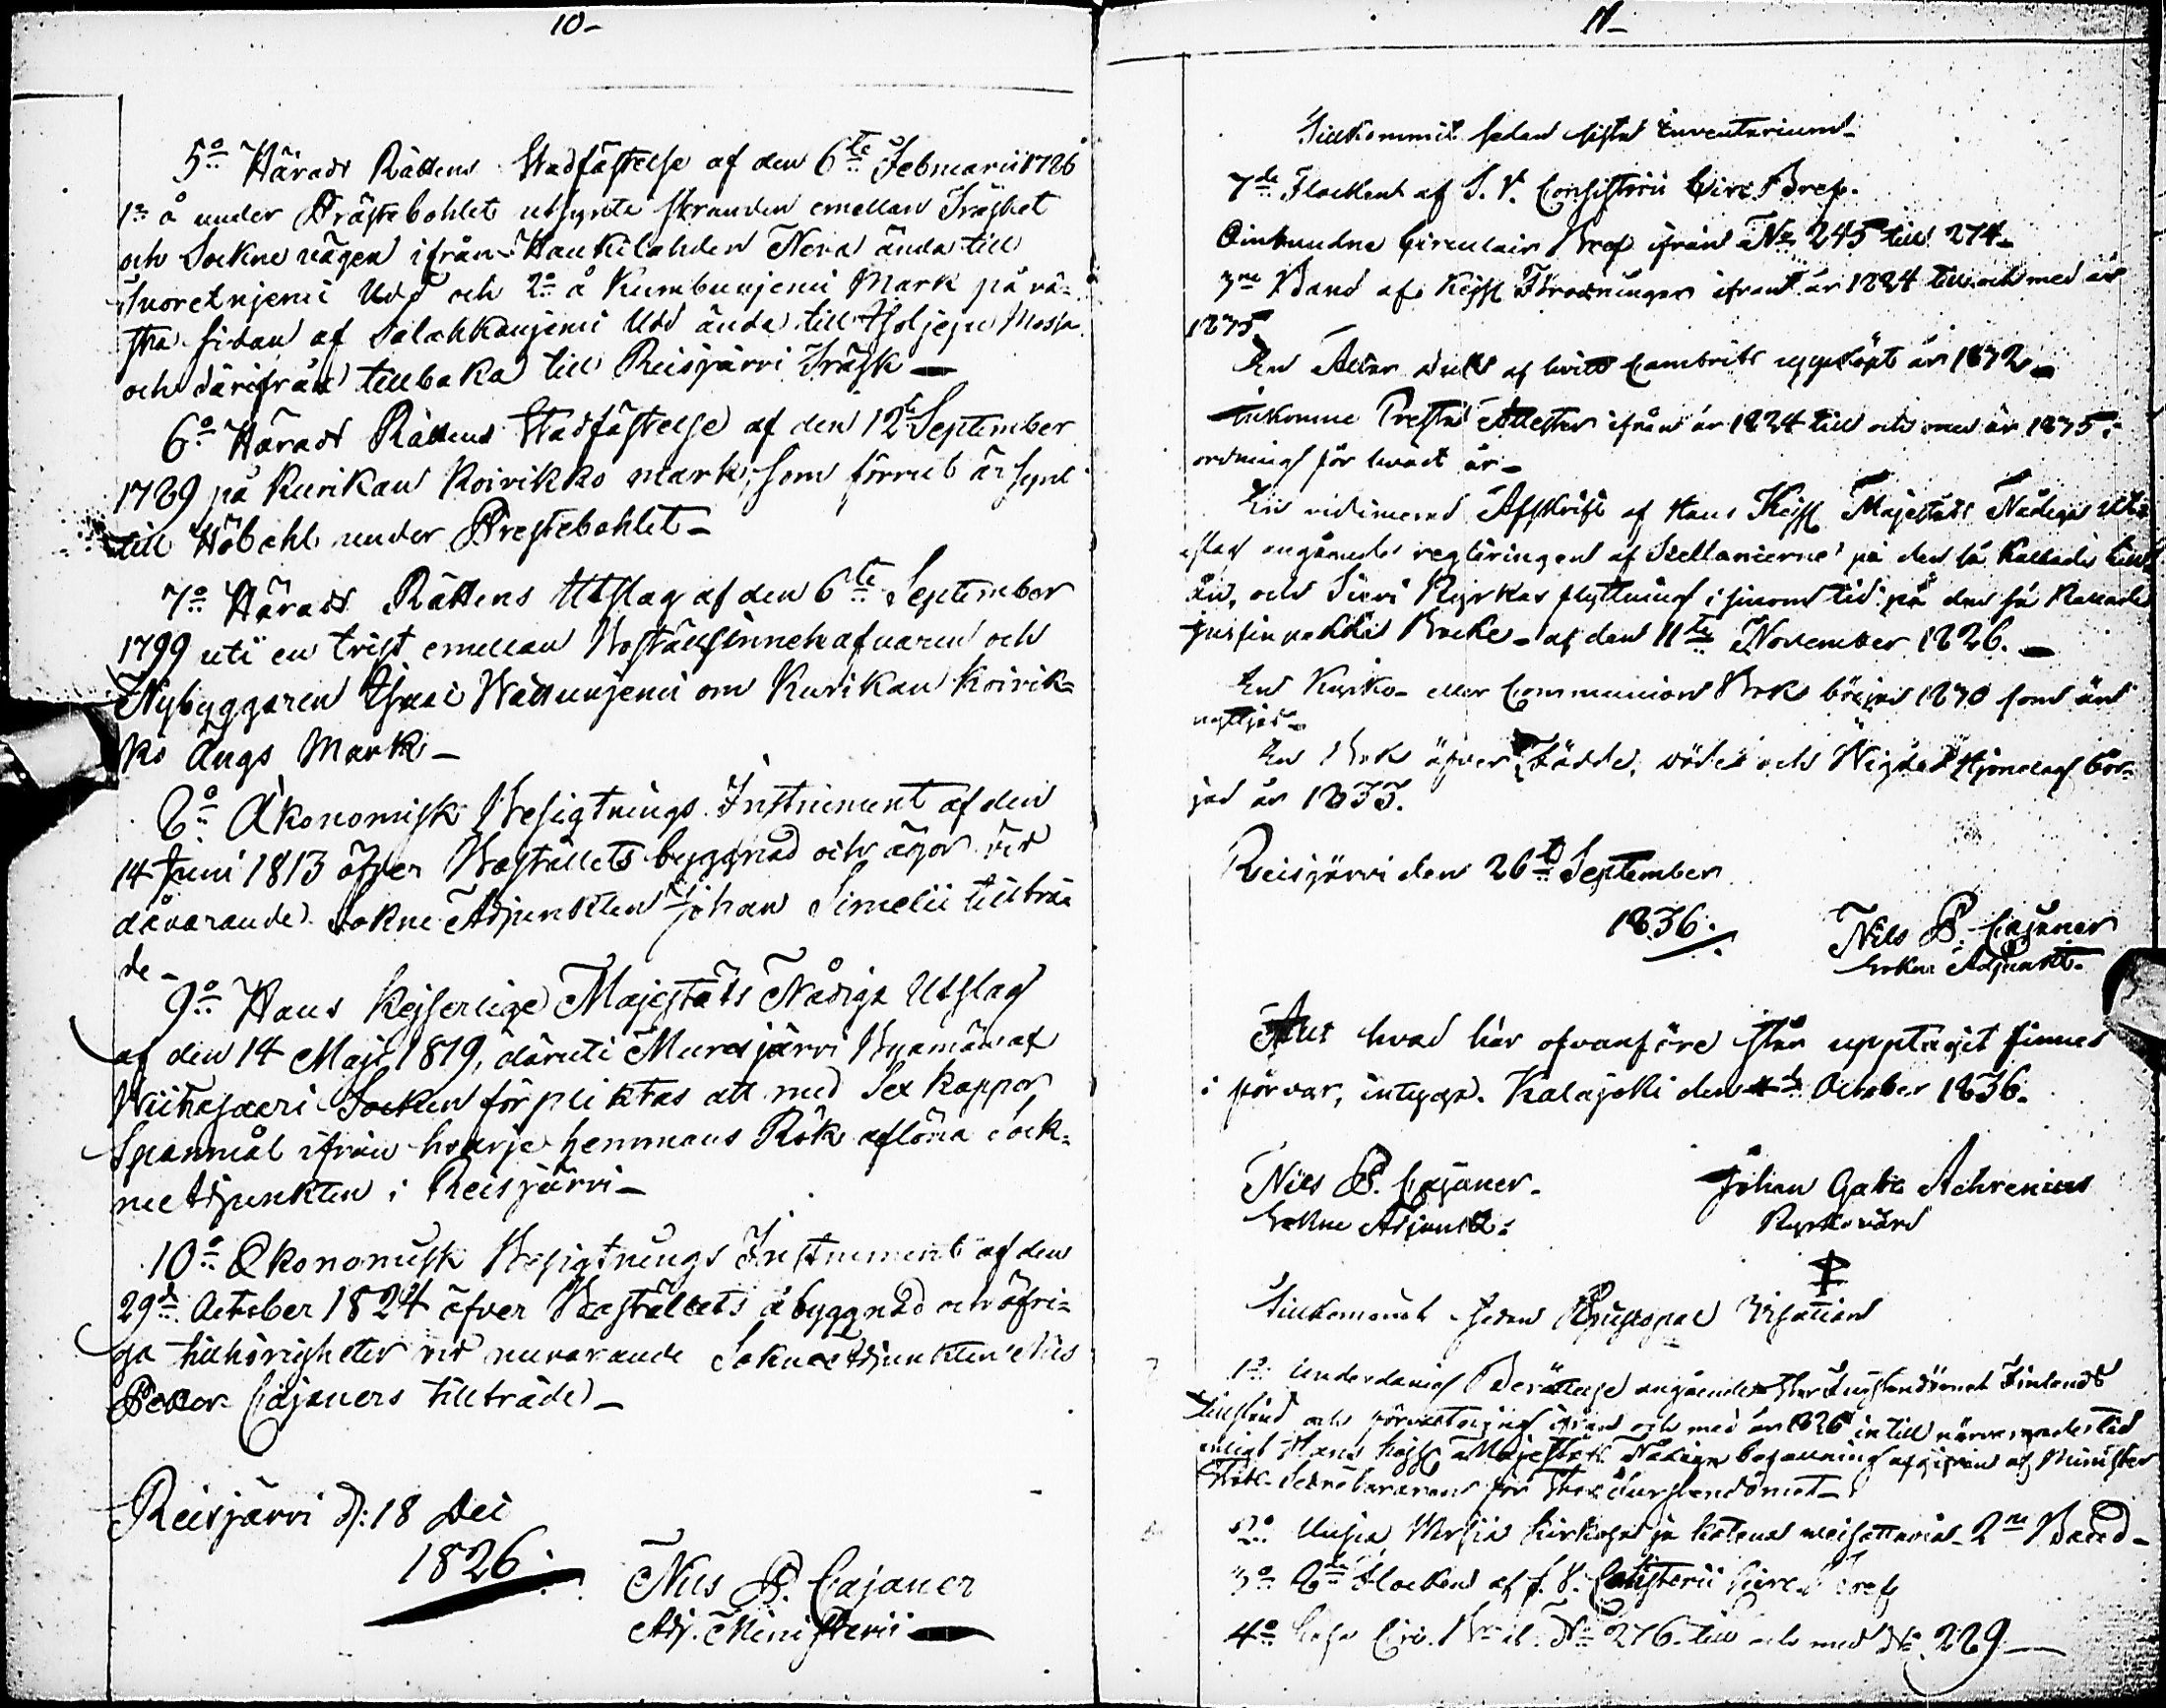 10-
5º Härads Rättens Stadfästelse af den 6te Februarii 1786
1º å under Prästebohlet utsynte stranden emellan Träsket
och Sockne vägen ifrån Haukilahden Neva ända till
Udd och 2º å Kumbunjemi Mark på vä-
stra sidan af Udd ända till Mossa
och därifrån tillbaka till Reisjärvi Träsk —
6º Härads Rättens Stadfästelse af den 12te September
1789 på Kurikan Koivikko mark, som förrut är synt
till Höbohl under Prestebohlet -
7º Härads Rättens Utslag af den 6te September
1799 uti en tvist emellan Boställsinnehafvaren och
Nybyggaren om Kurikan Koivik-
ko Ängs Mark -
8º Äkonomisk Besigtnings Instrument af den
14 Juni 1813 öfver Boställets byggnad och ägor vid
dåvarande Sokne Adjunkten Johan Simelii tillträ-
de -
9º Hans Kejserlige Majestäts Nådiga Utslag
af den 14 Maji 1819, däruti Muurasjärvi Byamän af
Socken förpliktas att med Sex kappor
Spanmål ifrån hvarje hemmans Rök aflöna Sock-
ne Adjunkten i Reisjärvi -
10º Økonomisk Besigtnings Instrument af den
29de October 1824 öfver Boställets åbyggnad och öfri-
ga tillhörigheter vid nuvarande Sokne Adjunkten Nils
Petter Cajaners tillträde -
Reisjärvi d: 18 Dec
1826.
Nils P. Cajaner
Adj. Ministerii —
11-
Tillkommit sedan sista Inventarium -
7de Flocken af S. V. Consistorii Circ. Bref.
Oinbundne Circulair Bref ifrån No 245 till 274 -
3ne Band af Kejs. Förordningar ifrån år 1824 till och med år
1835
En Altar duk af hvitt Cambrits uppköpt år 1832 -
Inkomne Presta Attester ifrån år 1824 till och med år 1835 i
ordning för hvart år -
En vidimerad Afskrift af Hans Kejs. Majestäts Nådiga Ut-
slag angående regleringen af på den så kallade
ån, och Sievi Kyrkas flyttning i sinom tid på den så kallade
Backe - af den 11te November 1826. —
En Kyrko- eller Communion Bok börjad 1830 som än
nyttjas -
En Bok öfver Födde, döde och Wigde Hjonelag bör-
jad år 1833.
Reisjärvi den 26te September
1836.
Nils P. Cajaner
Sokne Adjunkt.
Att hvad här ofvanföre står upptagit finnes
i förvar, intygas. Kalajoki den 4de October 1836.
Nils P. Cajaner.
Sokne Adjunkt.
Johan Gabr. Achrenius
Kyrkovärd
Tillkommit sedan Episcopal Visitation
1º Underdånig Berättelse angående Stor Furstendömet Finlands
tillstånd och förvaltning ifrån och med år 1826 in till närvarande tid
enligt Hans Kejs. Majestäts Nådiga befallning afgifven af Minister
Stats Secreteraren för Stor Furstendömet -
2º Uusia Virsiä Kirkossa ja Kotona veisattavia - 2ne Band -
3º 8de Flocken af S. V. Consistorii Circ. Bref
4º Circ. Bref No 276 till och med No 289 —